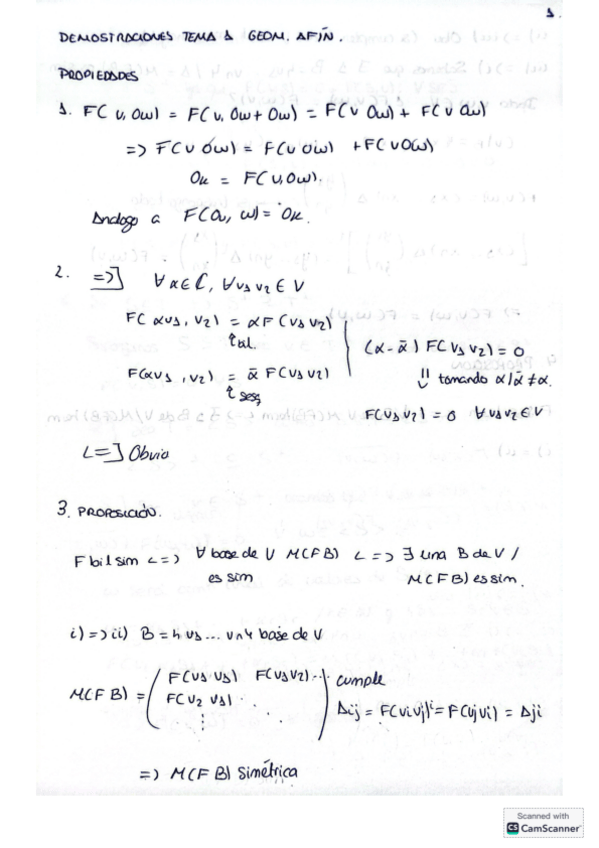 1.
DEMOSTRACIONES TEMA 1 GEOM. AFÍN.
PROPIEDADES
1. F(v, 0w) = F(v, 0w + 0w) = F(v 0w) + F(v 0w)
=> F(v 0w) = F(v 0w) + F(v 0w)
0k = F(v, 0w).
Analogo a F(0v, w) = 0k.
2. =>] ∀α∈ℂ, ∀v1 v2 ∈ V
F(αv1, v2) = αF(v1 v2)
↑ bil.
(α-ᾱ) F(v1 v2) = 0
F(αv1, v2) = ᾱ F(v1 v2)
↑ sesq
⇓ tomando α/ᾱ≠α.
F(v1 v2) = 0 ∀v1 v2 ∈ V
<=] Obvio
3. PROPOSICIÓN.
F bil sim <=> ∀ base de V M(F B) <=> ∃ una B de V /
es sim M(F B) es sim.
i) => ii) B = {v1 ... vn} base de V
M(F B) = ( F(v1 v1) F(v1 v2) ...
F(v2 v1) ... ) cumple
Aij = F(vi vj) = F(vj vi) = Aji
=> M(F B) simétrica
Scanned with
CS CamScanner